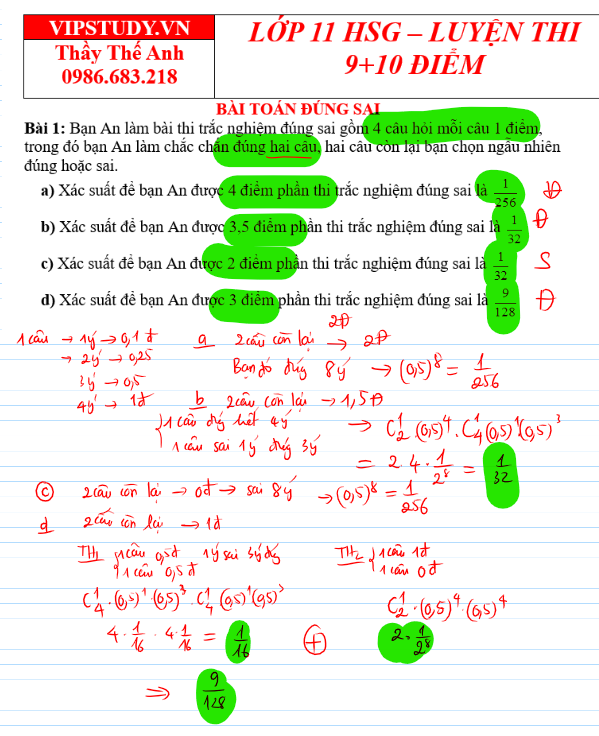 VIPSTUDY.VN
Thầy Thế Anh
0986.683.218
LỚP 11 HSG – LUYỆN THI
9+10 ĐIỂM
BÀI TOÁN ĐÚNG SAI
Bài 1: Bạn An làm bài thi trắc nghiệm đúng sai gồm 4 câu hỏi mỗi câu 1 điểm,
trong đó bạn An làm chắc chắn đúng hai câu, hai câu còn lại bạn chọn ngẫu nhiên
đúng hoặc sai.
a) Xác suất để bạn An được 4 điểm phần thi trắc nghiệm đúng sai là 1/256 Đ
b) Xác suất để bạn An được 3,5 điểm phần thi trắc nghiệm đúng sai là 1/32 Đ
c) Xác suất để bạn An được 2 điểm phần thi trắc nghiệm đúng sai là 1/32 S
d) Xác suất để bạn An được 3 điểm phần thi trắc nghiệm đúng sai là 9/128 Đ
2Đ
1 câu → 1ý → 0,1 đ
a 2 câu còn lại → 2Đ
→ 2ý → 0,25
Bạn đó đúng 8 ý → (0,5)^8 = 1/256
3ý → 0,5
4ý → 1đ
b 2 câu còn lại → 1,5Đ
{ 1 câu đúng hết 4ý
1 câu sai 1ý đúng 3ý
→ C_2^1 . (0,5)^4 . C_4^1 (0,5)^1 (0,5)^3
= 2.4. 1/2^8 = 1/32
c 2 câu còn lại → 0đ → sai 8 ý → (0,5)^8 = 1/256
d 2 câu còn lại → 1đ
TH1 { 1 câu 0,5đ 1ý sai 3ý đúng
1 câu 0,5 đ
TH2 { 1 câu 1đ
1 câu 0đ
C_4^1 . (0,5)^1 . (0,5)^3 . C_4^1 (0,5)^1 (0,5)^3
C_2^1 . (0,5)^4 . (0,5)^4
4. 1/16 . 4. 1/16 = 1/16 + 2. 1/2^8
⇒ 9/128